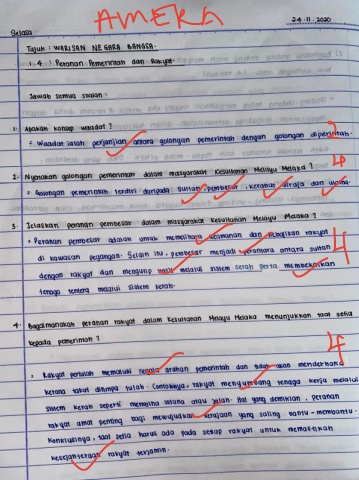 AMEKA
Selasa
24.11.2020
Tajuk : WARISAN NEGARA BANGSA.
1.4 : Peranan Pemerintah dan Rakyat.
Jawab semua soalan :
1. Apakah konsep waadat ?
• Waadat ialah perjanjian antara golongan pemerintah dengan golongan diperintah.
2. Nyatakan golongan pemerintah dalam masyarakat Kesultanan Melayu Melaka ? 4
• Golongan pemerintah terdiri daripada sultan, pembesar, kerabat diraja dan ulama.
3. Jelaskan peranan pembesar dalam masyarakat Kesultanan Melayu Melaka ?
• Peranan pembesar adalah untuk memelihara keamanan dan kebajikan rakyat
di kawasan pegangan. Selain itu, pembesar menjadi perantara antara sultan 4
dengan rakyat dan mengutip hasil melalui sistem serah serta membekalkan
tenaga tentera melalui sistem kerah.
4. Bagaimanakah peranan rakyat dalam Kesultanan Melayu Melaka menunjukkan taat setia
kepada pemerintah ? 4
• Rakyat perlulah mematuhi segala arahan pemerintah dan tidak akan menderhaka
kerana takut ditimpa tulah. Contohnya, rakyat menyumbang tenaga kerja melalui
sistem kerah seperti membina istana atau jalan. Hal yang demikian, peranan
rakyat amat penting bagi mewujudkan kerajaan yang saling bantu-membantu.
Konklusinya, taat setia harus ada pada setiap rakyat untuk memastikan
kesejahteraan rakyat terjamin.